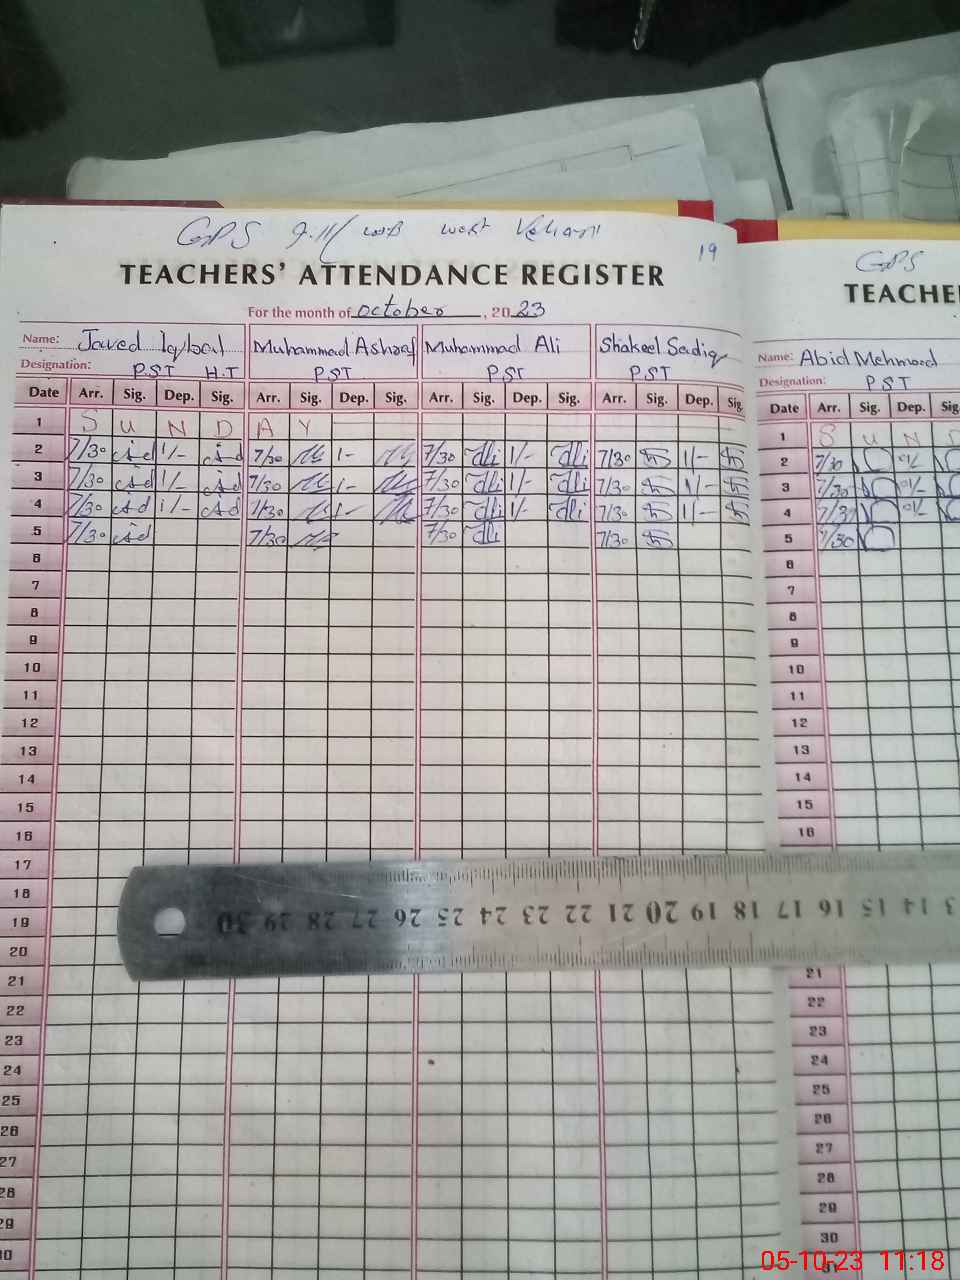 GPS 9-11/ WB west Vehari
19
TEACHERS' ATTENDANCE REGISTER
For the month of October, 2023
Name: Javed Iqbal Muhammad Ashraf Muhammad Ali Shakeel Sadiq
Designation: PST H.T PST PST PST
Date Arr. Sig. Dep. Sig. Arr. Sig. Dep. Sig. Arr. Sig. Dep. Sig. Arr. Sig. Dep. Sig.
1 S U N D A Y
2 7/30 1/- 7/30 1- 7/30 1/- 7/30 1/-
3 7/30 1/- 7/30 1- 7/30 1/- 7/30 1/-
4 7/30 1/- 7/30 1- 7/30 1/- 7/30 1/-
5 7/30 7/30 7/30 7/30
6
7
8
9
10
11
12
13
14
15
16
17
18
19
20
21
22
23
24
25
26
27
28
29
30
GPS
TEACHE
Name: Abid Mehmood
Designation: PST
Date Arr. Sig. Dep. Sig
1 S U N D
2 7/30
3 7/30
4 7/30
5 7/30
6
7
8
9
10
11
12
13
14
15
16
21
22
23
24
25
26
27
28
29
30
31
30 29 28 27 26 25 24 23 22 21 20 19 18 17 16 15 14 13
05-10-23 11:18